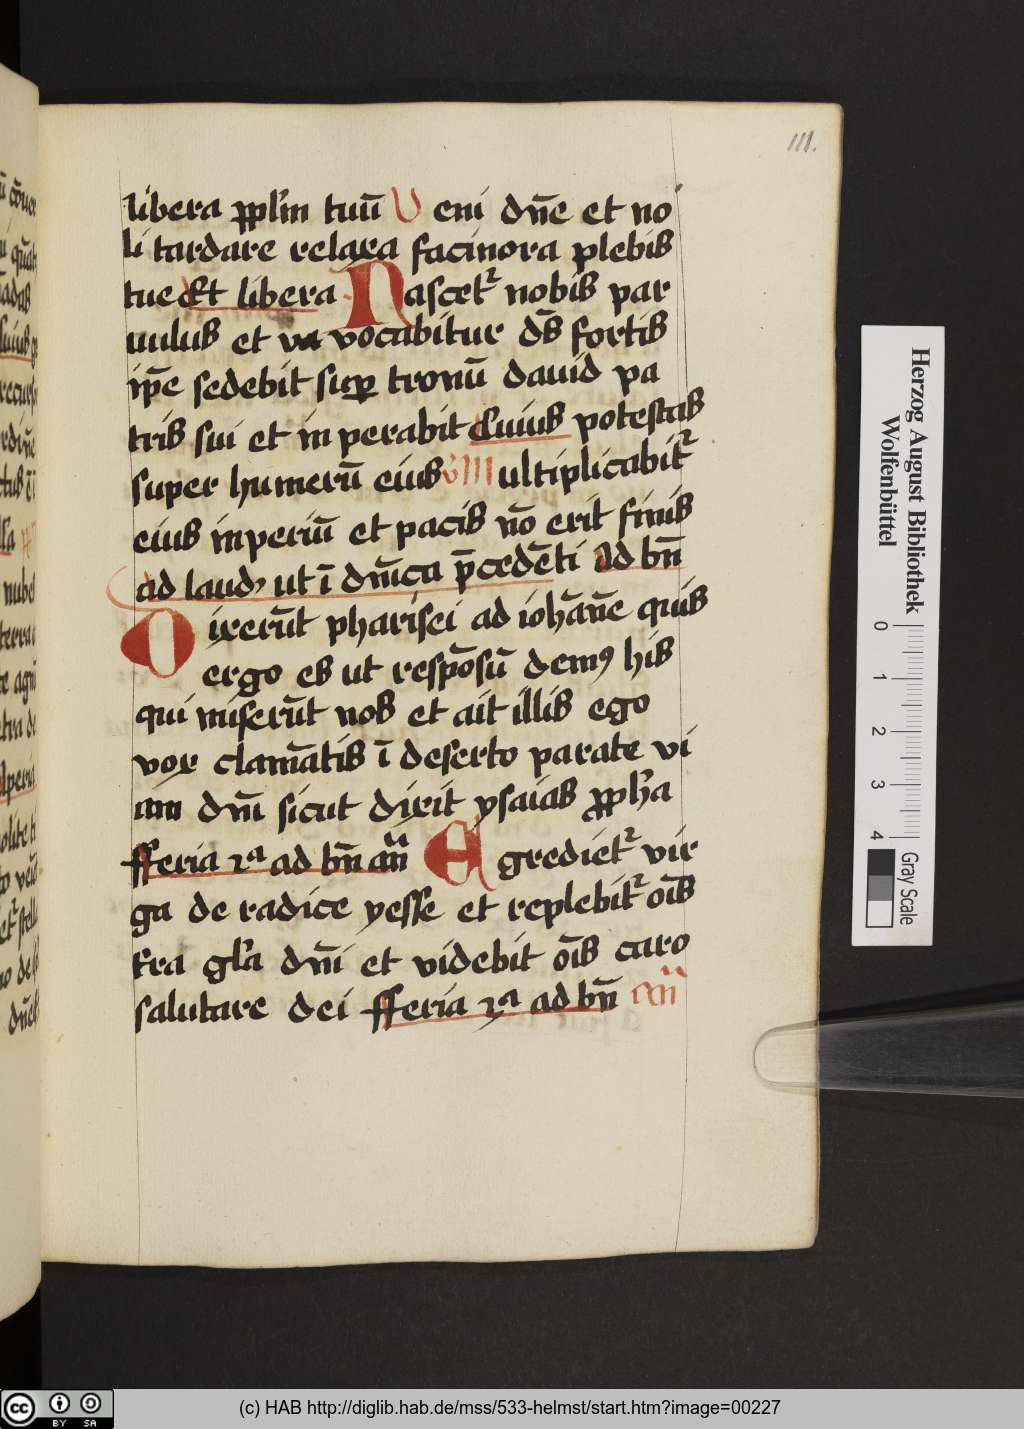 111.
libera pp̄lm tuū V eni dn̄e et no
li tardare relaxa facinora plebis
tue Et libera Nascet᷑ nobis par
uulus et va vocabitur ds̄ fortis
ip̄e sedebit suꝑ tronū dauid pa
tris sui et in perabit Cuius potestas
super humerū eius V̄ Multiplicabit᷑
eius inperiū et pacis nō erit finis
ad laudꝫ ut ī dn̄ica p̄cedēti Ad bn̄
Dixerūt pharisei ad iohān̄e quis
ergo es ut respōsū demꝰ his
qui miserūt nos et ait illis ego
vox clamātis ī deserto parate vi
am dn̄i sicut dixit ysaias pp̄ha
fferia 2ª ad bn̄ an̄ Egrediet᷑ vir
ga de radice yesse et replebit᷑ oīs
t̄ra gl̄a dn̄i et videbit oīs caro
salutare dei fferia 2ª ad bn̄ an̄
Herzog August Bibliothek
Wolfenbüttel
0 1 2 3 4
Gray Scale
BY SA
(c) HAB http://diglib.hab.de/mss/533-helmst/start.htm?image=00227